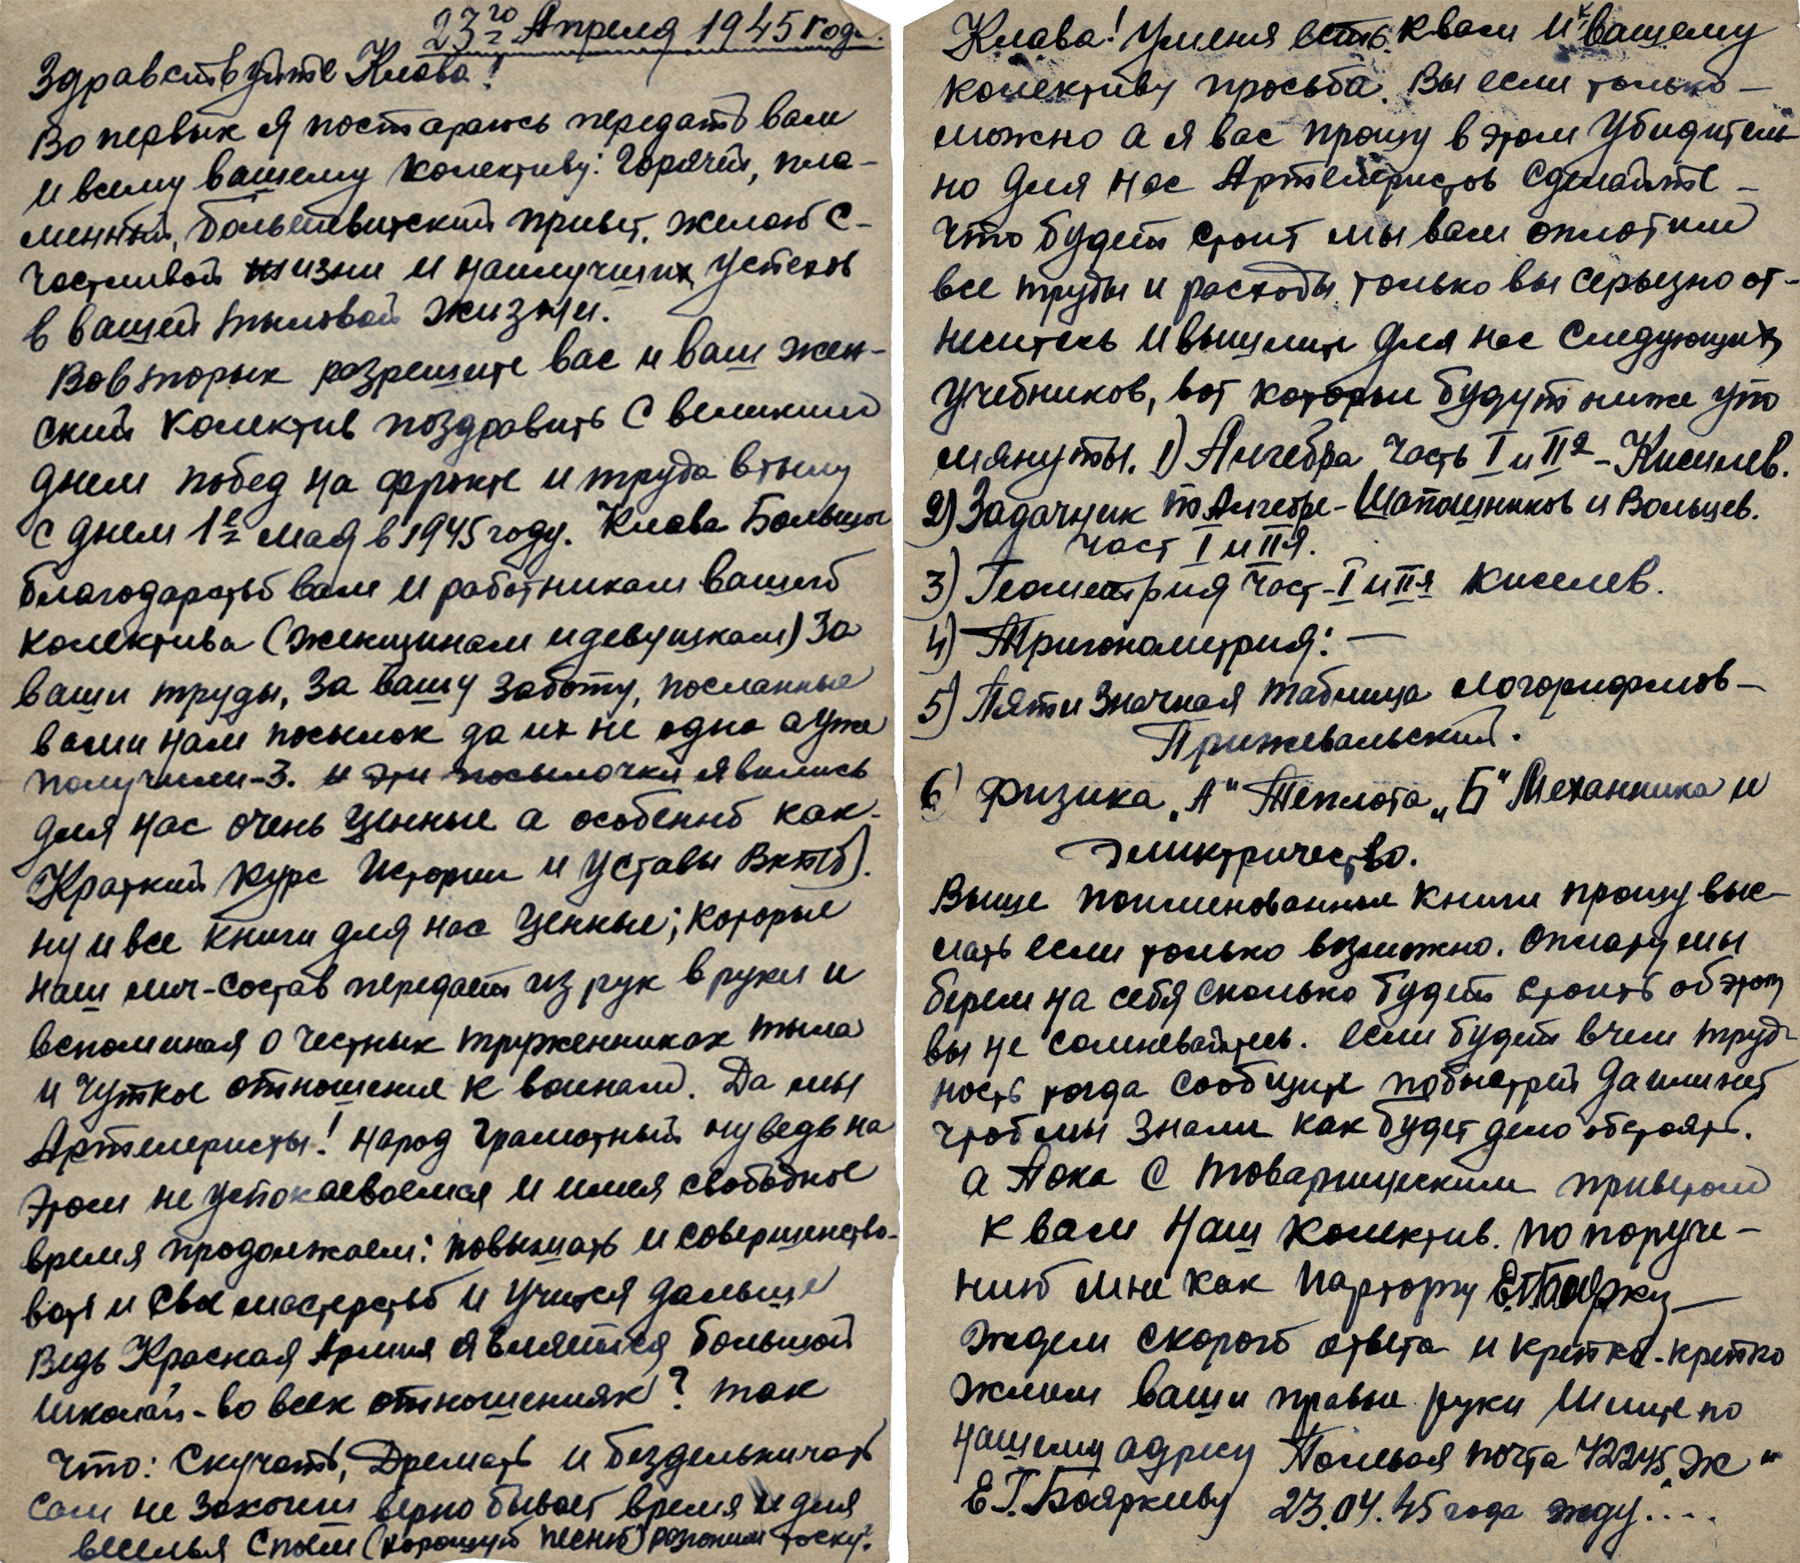 23го Апреля 1945 года.
Здравствуйте Клава!
Во первых я постараюсь передать вам
и всему вашему колективу: Горячий, пла-
менный, большевитский привет, желаю с-
частливой жизни и наилучших успехов
в вашей тыловой жизни.
Вовторых разрешите вас и ваш жен-
ский колектив поздравить с великим
днем побед на фронте и труда втылу
с днем 1е мая в 1945 году. Клава Большое
благодарство вам и работникам вашего
колектива (женщинам и девушкам) За
ваши труды, за вашу заботу, посланные
вами нам посылок да их не одна а уже
получили-3. и эти посылочки явились
для нас очень ценные а особенно как-
Краткий курс Истории и уставы Вкпб).
ну и все книги для нас ценные; которые
наш лич-состав передает из рук вруки и
вспоминая о честных труженниках тыла
и чуткое отношение к воинам. Да мы
Артелеристы! народ грамотный ну ведь на
этом не успокаеваемся и имея свободное
время продолжаем: повышать и совершенство-
вать и свое мастерство и учится дальше
Ведь Красная Армия является большой
школой-во всех отношениях? так
что: Скучать, Дремать и бездельничать
сам не захочеш верно бывает время и для
веселья споем (хорошую песню) розгоним тоску?
Клава! Уменя есть к вам и к вашему
колективу просьба. Вы если только-
можно а я вас прошу в этом Убидитель-
но для нас Артелеристов сделайте-
что будет стоит мы вам оплотим
все труды и расходы, только вы серьезно от-
неситесь и вышлите для нас следующих
учебников, вот которые будут ниже упо
мянуты. 1) Алгебра часть I и II я-Киселев.
2) Задачник по Алгебре-Шапошников и Вольцев.
част I и II я.
3) Геометрия част-I и II я киселев.
4) Тригонометрия:-
5) Пяти значная таблица логорифмов-
Прижевальский.
6) Физика „А" Теплота „Б" Механника и
электричество.
Выше поименованные книги прошу выс-
лать если только возможно. оплату мы
берем на себя сколько будет стоить об этом
вы не сомневайтесь. если будет в чем труд-
ность тогда сообщите побыстрей да или нет
чтоб мы знали как будет дело обстоять.
а Пока с товарищеским приветом
к вам наш колектив. по поруче-
нию мне как парторгу Е.Г.Бояркu-
Ждем скорого ответа и крепко-крепко
жмем ваши правые руки Пишите по
нашему адресу Полевая почта 42245 „Ж"
Е.Г.Бояркиву 23.04.45 года жду....